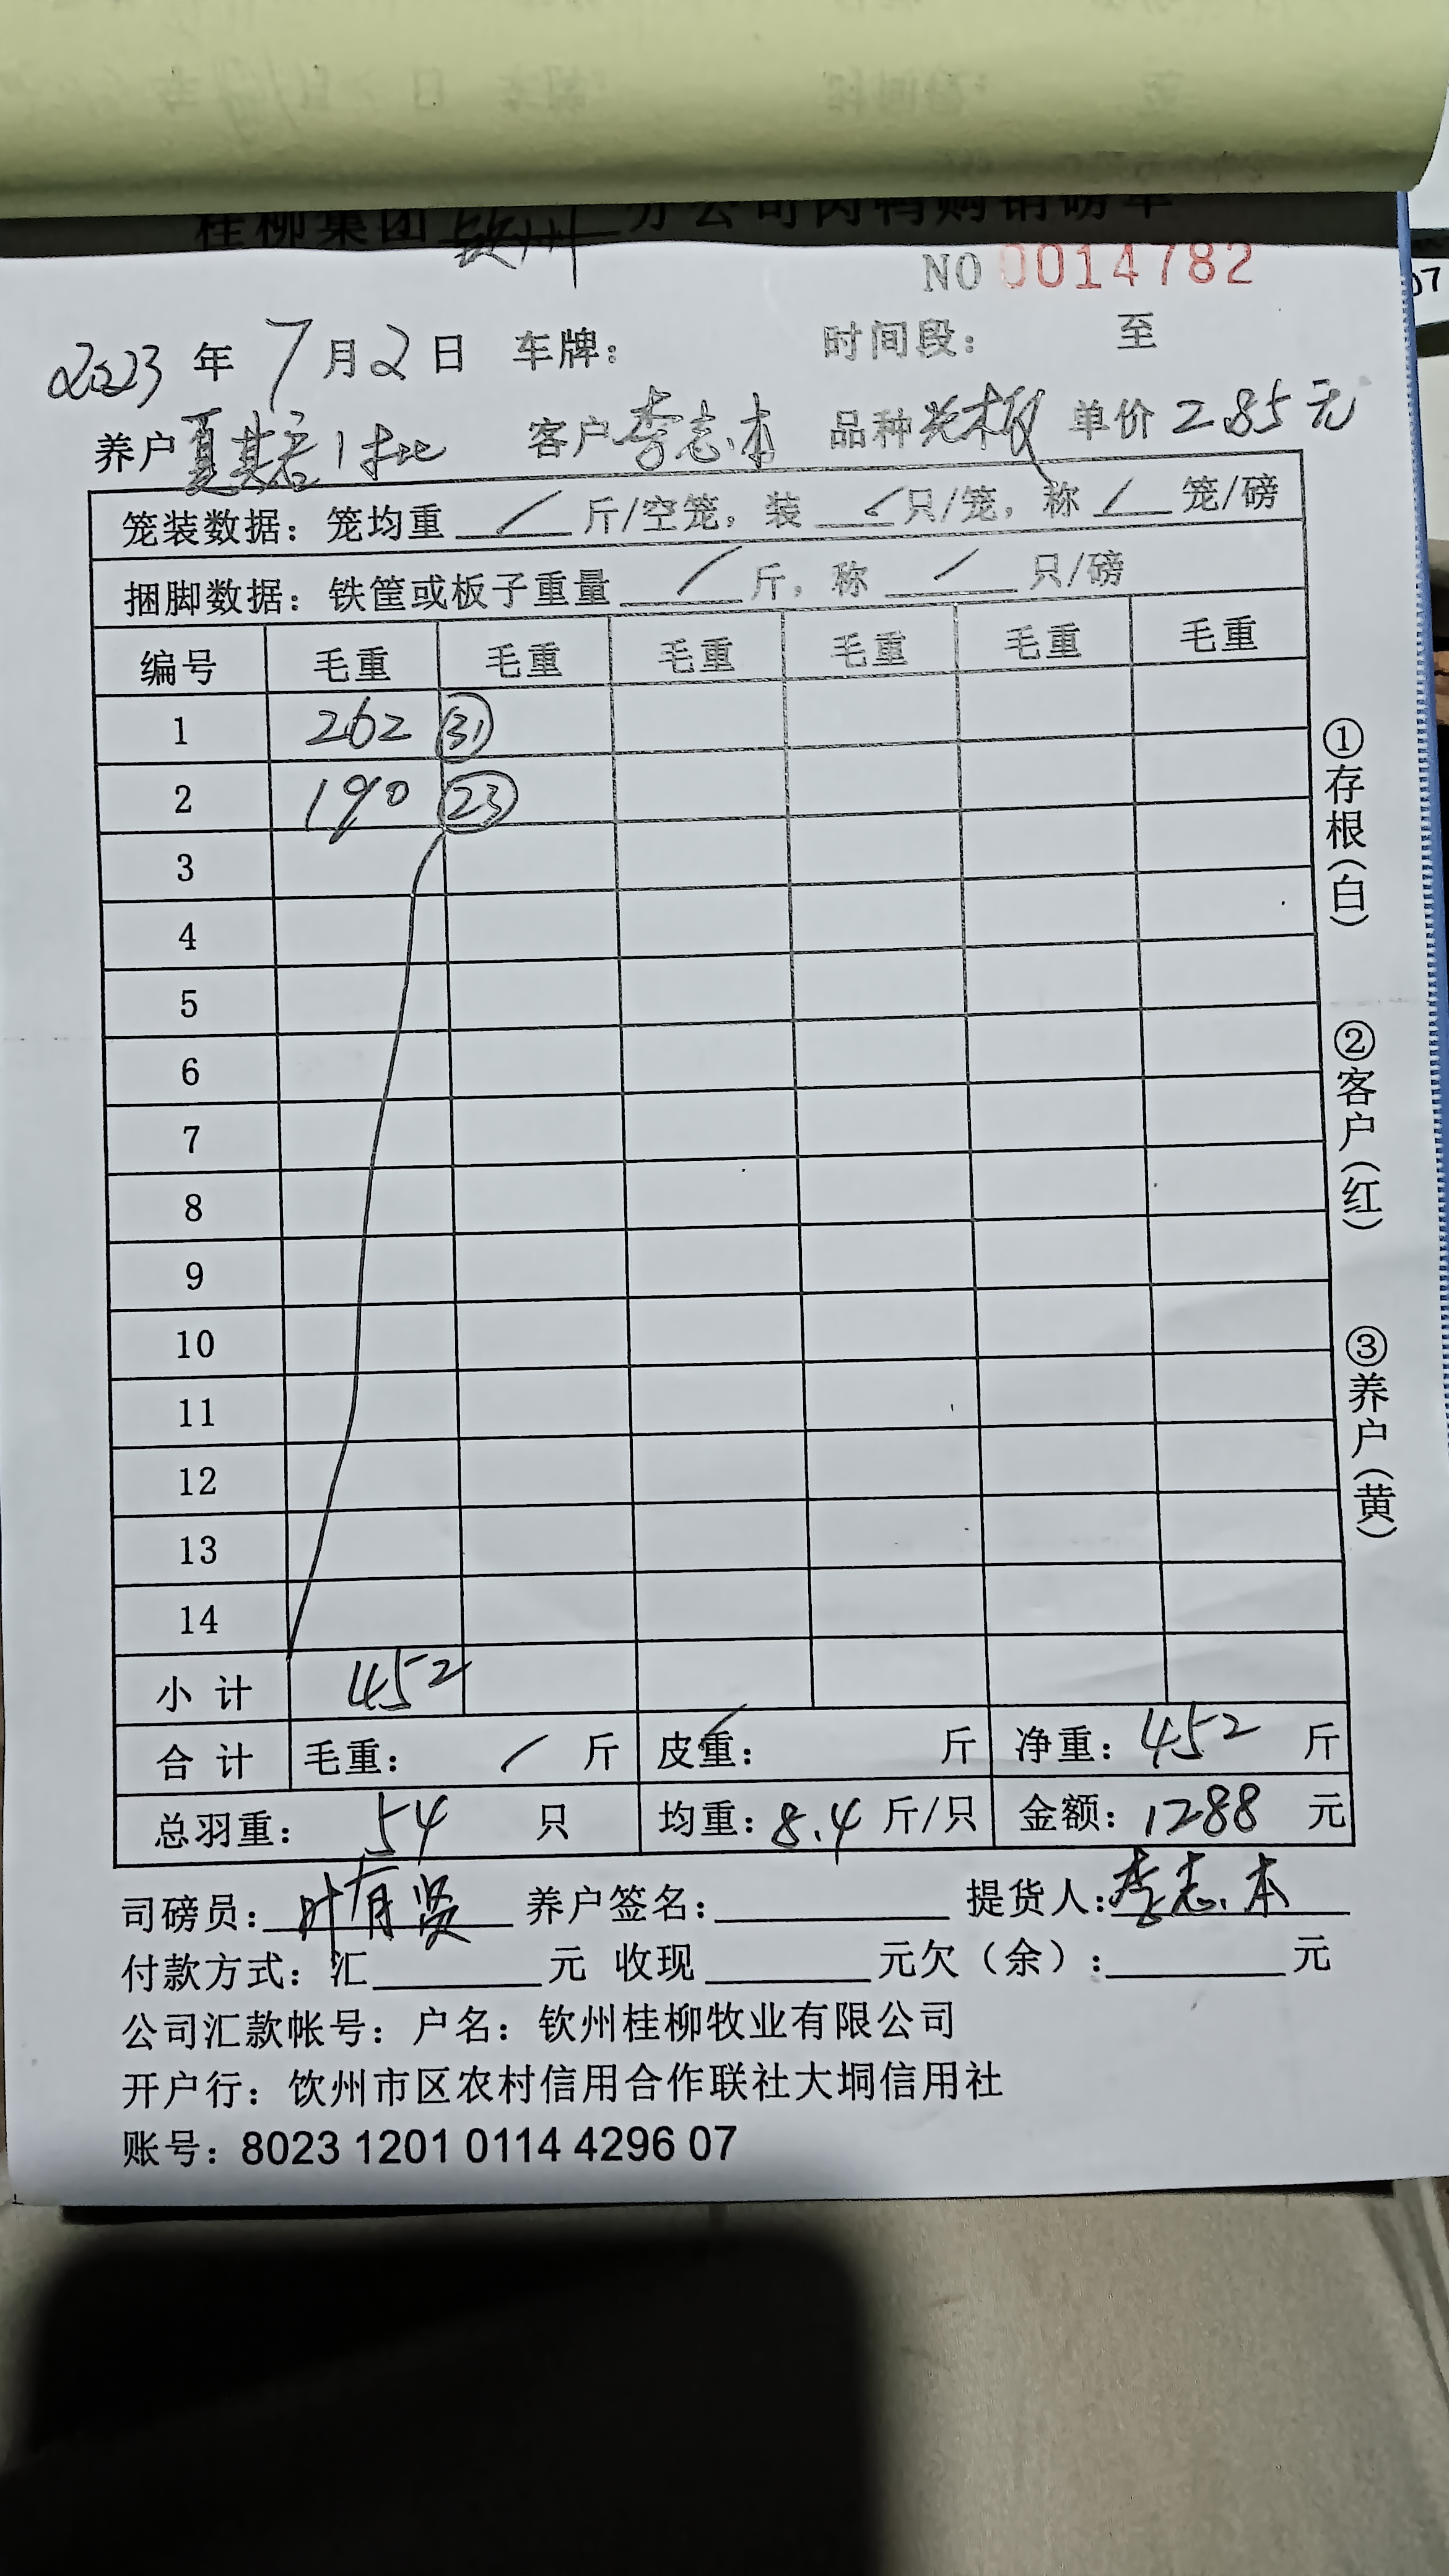 桂柳集团 钦州 分公司肉鸭购销磅单
NO 0014782
2023 年 7 月 2 日 车牌： 时间段： 至
养户 夏其君1批 客户 李志本 品种 光板 单价 2.85元
笼装数据：笼均重 / 斤/空笼，装 / 只/笼，称 / 笼/磅
捆脚数据：铁筐或板子重量 / 斤，称 / 只/磅
编号 毛重 毛重 毛重 毛重 毛重 毛重
1 262 31
2 190 23
3
4
5
6
7
8
9
10
11
12
13
14
小 计 452
合 计 毛重： / 斤 皮重： / 斤 净重：452 斤
总羽重： 54 只 均重：8.4 斤/只 金额：1288 元
司磅员：叶有贤 养户签名： 提货人：李志本
付款方式：汇 元 收现 元欠（余）： 元
公司汇款帐号：户名：钦州桂柳牧业有限公司
开户行：饮州市区农村信用合作联社大垌信用社
账号：8023 1201 0114 4296 07
①存根（白）
②客户（红）
③养户（黄）
07